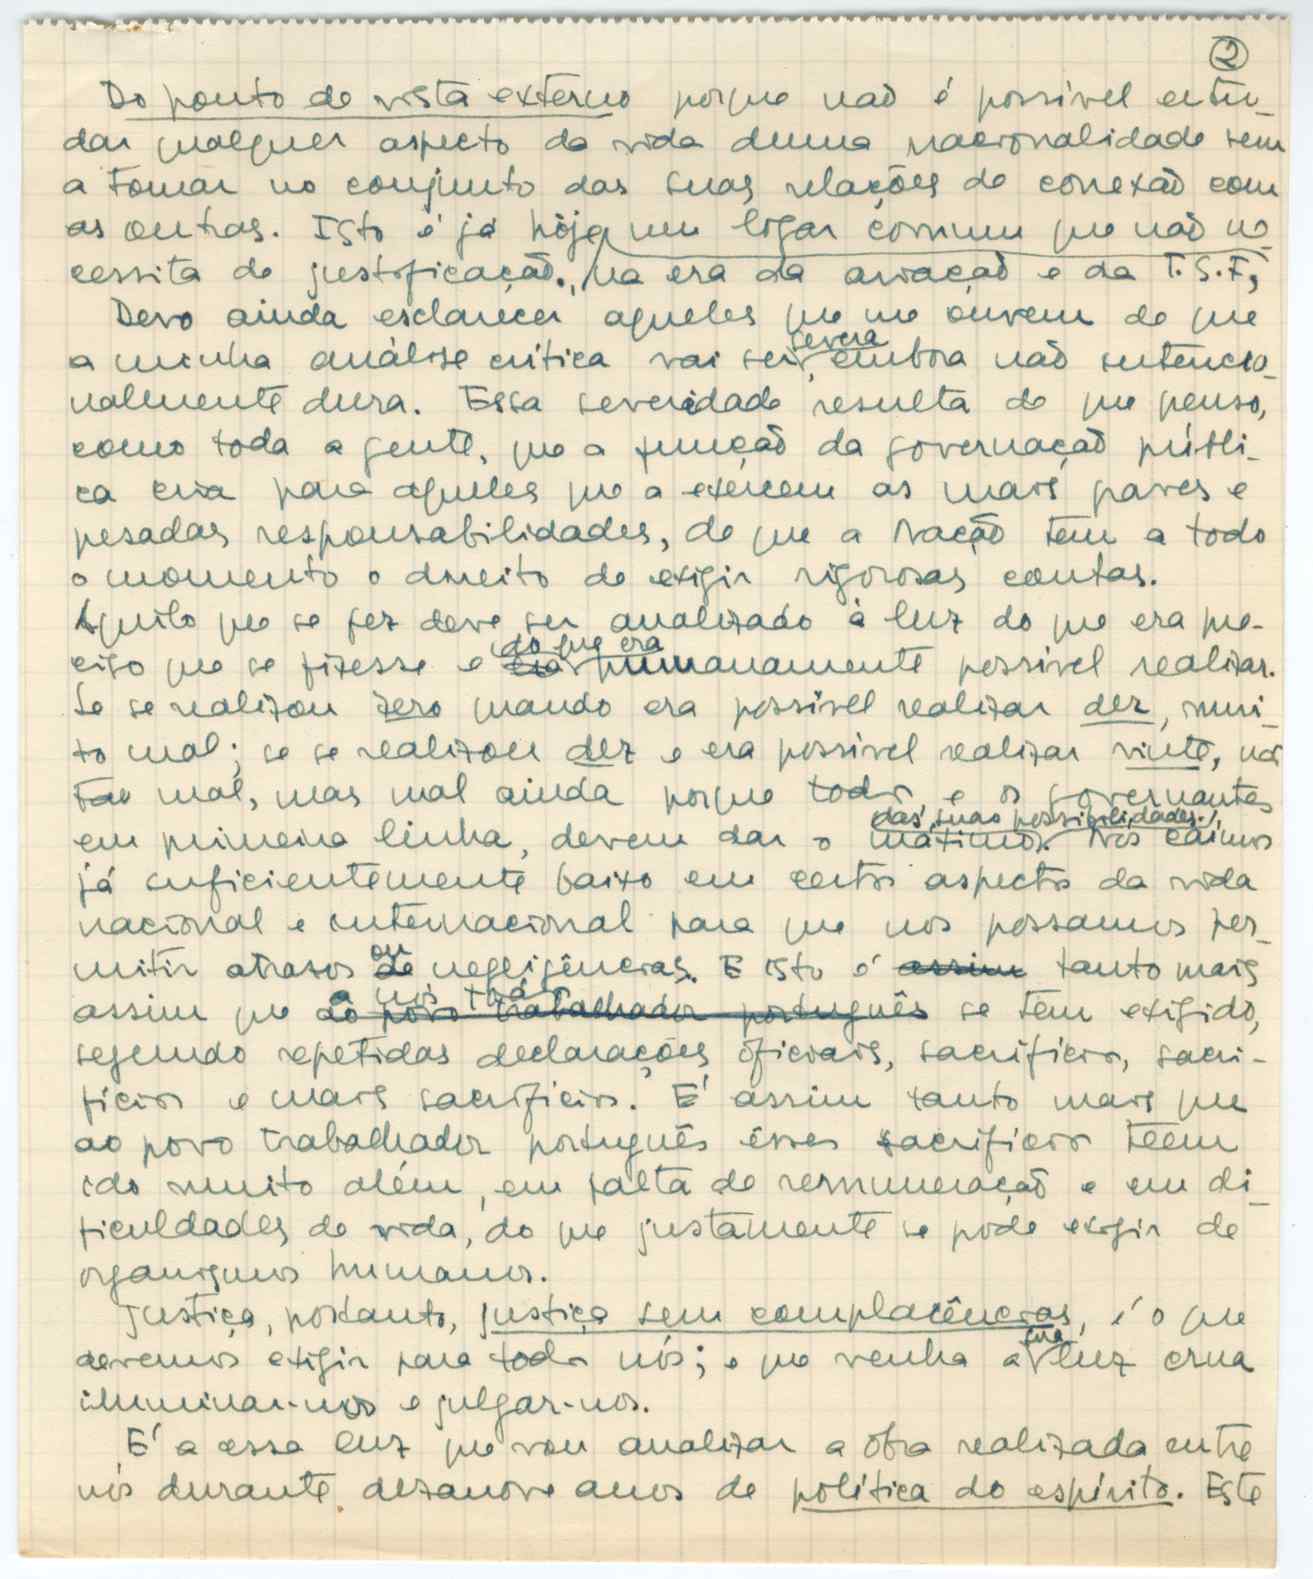 2
Do ponto de vista externo porque não é possível estu-
dar qualquer aspecto da vida duma nacionalidade sem
a tomar no conjunto das suas relações de conexão com
as outras. Isto é já hôje um logar comum que não ne-
cessita de justificação, na era da aviação e da T.S.F,
Devo ainda esclarecer aqueles que me ouvem de que
a minha análise crítica vai ser severa, embora não intencio-
nalmente dura. Essa severidade resulta de que penso,
como toda a gente, que a função da governação públi-
ca cria para aqueles que a exercem as mais graves e
pesadas responsabilidades, de que a Nação tem a todo
o momento o direito de exigir rigorosas contas.
Aquilo que se fez deve ser analizado à luz do que era pre-
ciso que se fizesse e do que era humanamente possivel realizar.
Se se realizou zero quando era possivel realizar dez, mui-
to mal; se se realizou dez e era possivel realizar vinte,
mal, mas mal ainda porque todos e os governantes
em primeira linha, devem dar o máximo das suas possibilidades. Nós caímos
já suficientemente baixo em certos aspectos da vida
nacional e internacional para que nos possamos per-
mitir atrasos ou negligências. E isto é assim tanto mais
assim que a nós se tem exigido,
segundo repetidas declarações oficiais, sacrifícios, sacri-
fícios e mais sacrifícios. É assim tanto mais que
ao povo trabalhador português êsses sacrifícios teem
ido muito além, em falta de remuneração e em di-
ficuldades de vida, do que justamente se pode exigir de
organismos humanos.
Justiça, portanto, justiça sem complacências, é o que
devemos exigir para todos nós; e que venha a sua luz crua
iluminar-nos e julgar-nos.
É a essa luz que vou analizar a obra realizada entre
nós durante dezanove anos de política do espírito. Este